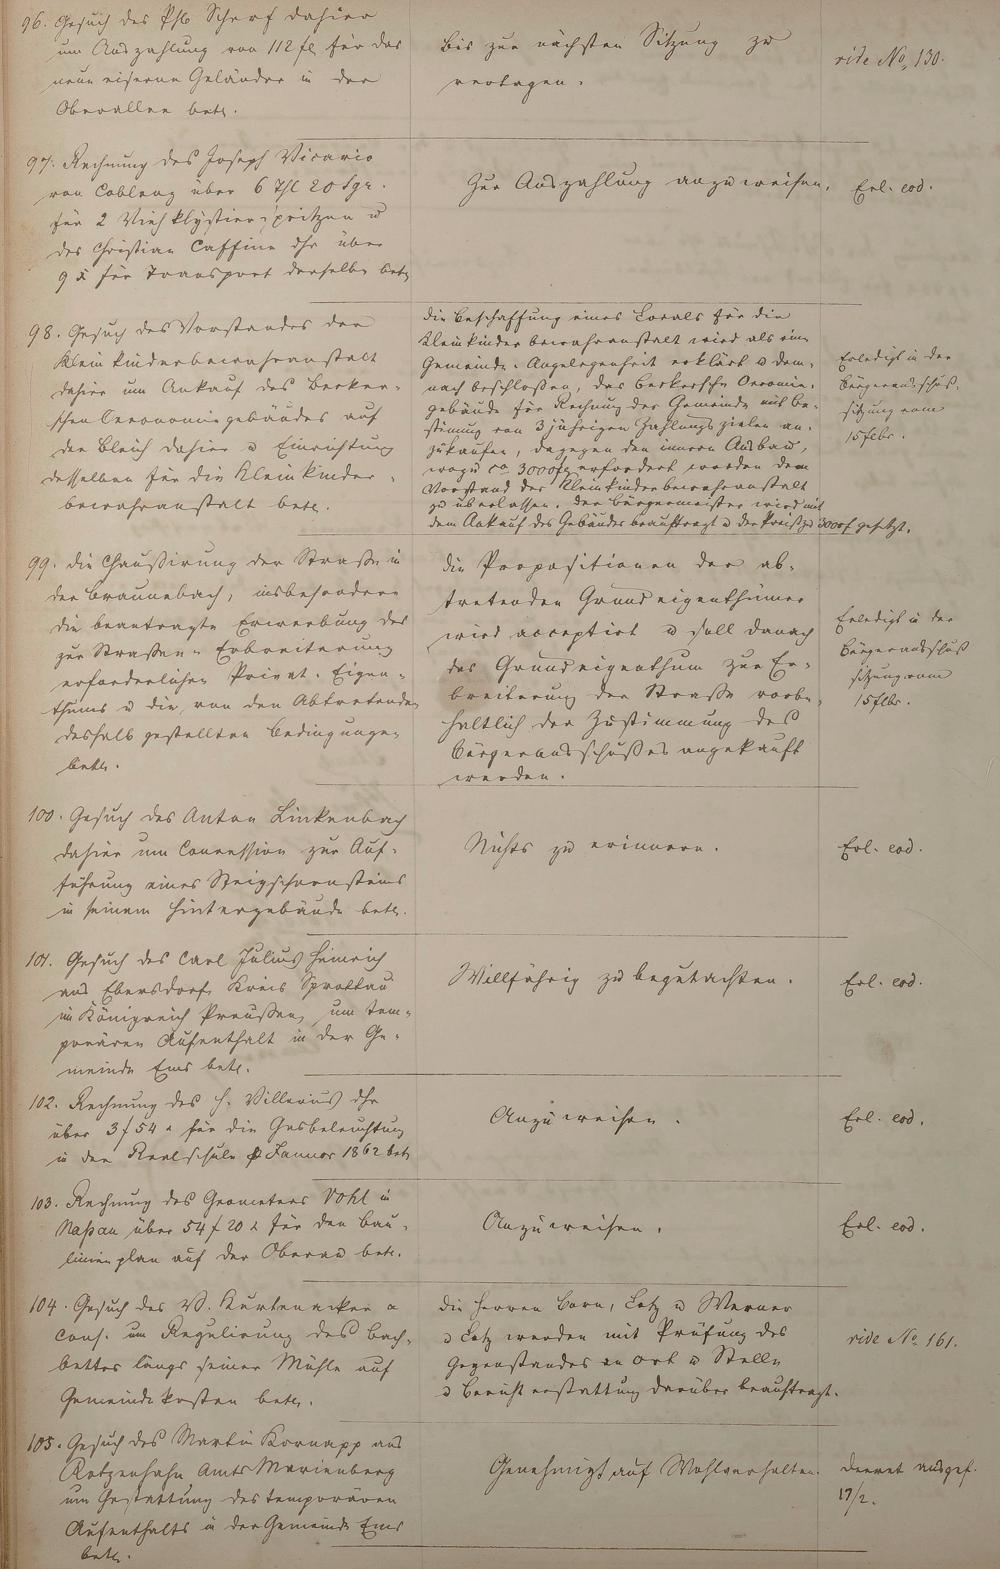 96. Gesuch des Phil. Scherf dahier
um Auszahlung von 112 fl für das
neue eiserne Geländer in der
Oberallee betr.
bis zur nächsten Sitzung zu
vertagen.
vide No. 130.
97. Rechnung des Joseph Vicario
von Coblenz über 6 Thl 20 Sgr.
für 2 Viehklystierspritzen u
des Christian Caffine dhr über
9 x für Transport derselben betr
Zur Auszahlung anzuweisen.
Erl. eod.
98. Gesuch des Vorstandes der
Kleinkinderbewahranstalt
dahier um Ankauf des Becker-
schen Oeconomiegebäudes auf
der Bleich dahier u Einrichtung
desselben für die Kleinkinder-
bewahranstalt betr.
Die Beschaffung eines Locals für die
Kleinkinderbewahranstalt wird als eine
Gemeinde-Angelegenheit erklärt u dem-
nach beschloßen, das Beckersche Oeconomie-
gebäude für Rechnung der Gemeinde mit Be-
stimung von 3 jährigen Zahlungszielen an-
zukaufen, dagegen den inneren Ausbau,
wozu ca 3000 fl erfordert werden dem
Vorstand der Kleinkinderbewahranstalt
zu überlassen. Der Bürgermeister wird mit
dem Ankauf des Gebäudes beauftragt u der Preiß zu 3000 f gesetzt.
Erledigt in der
Bürgerausschuß-
sitzung vom
15 flbr.
99. Die Chaußirung der Straße in
der Braunebach, insbesondere
die beantragte Erwerbung des
zur Straßen-Erbreiterung
erforderlichen Privat-Eigen-
thums u die von den Abtretenden
deshalb gestellten Bedingungen
betr.
Die Propositionen der ab-
tretenden Grundeigenthümer
wird acceptirt u soll danach
das Grundeigenthum zur Er-
breiterung der Straße vorbe-
haltlich der Zustimmung des
Bürgerausschußes angekauft
werden.
Erledigt in der
Bürgerausschuß
sitzung vom
15 flbr.
100. Gesuch des Anton Linkenbach
dahier um Concession zur Auf-
führung eines Steigschornsteins
in seinem Hintergebäude betr.
Nichts zu erinnern.
Erl. eod.
101. Gesuch des Carl Julius Heinrich
aus Ebersdorf, Kreis Sprottau
im Königreich Preußen, um tem-
porären Aufenthalt in der Ge-
meinde Ems betr.
Willfährig zu begutachten.
Erl. eod.
102. Rechnung des H. Villerius dhr
über 3 f 54 x für die Gasbeleuchtung
in der Realschule p Januar 1862 betr
Anzuweisen.
Erl. eod.
103. Rechnung des Geometers Vohl in
Naßau über 54 f 20 x für den Bau-
linienplan auf der Oberau betr.
Anzuweisen.
Erl. eod.
104. Gesuch des W. Kurtenacker a
Cons. um Regulirung des Bach-
bettes längs seiner Mühle auf
Gemeindekosten betr.
Die Herren Born, Lotz u Werner
u Lotz werden mit Prüfung des
Gegenstandes an Ort u Stelle
u Berichterstattung darüber beauftragt.
vide No. 161.
105. Gesuch des Martin Kornapp aus
Rotzenhahn Amts Marienberg
um Gestattung des temporären
Aufenthalts in der Gemeinde Ems
betr.
Genehmigt auf Wohlverhalten.
Decret ausgef.
17/2.